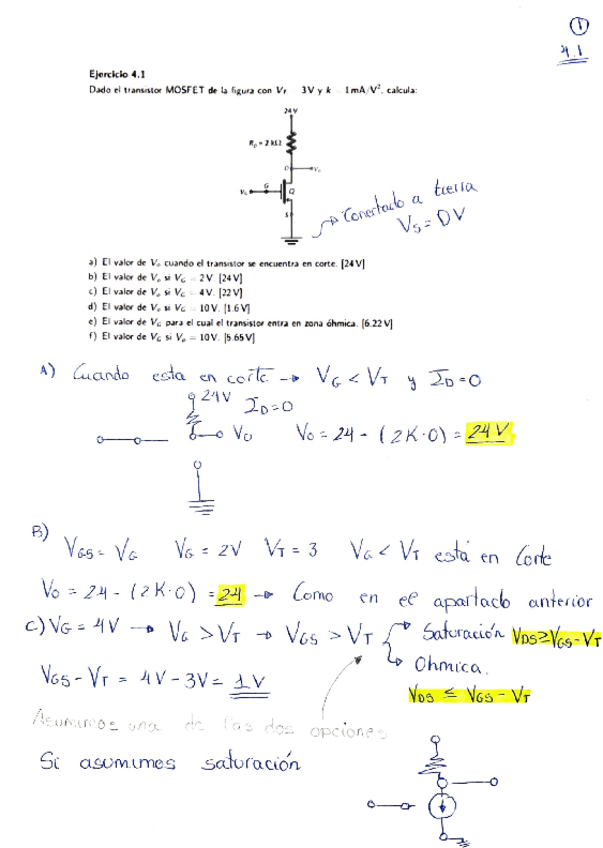 1
4.1
Ejercicio 4.1
Dado el transistor MOSFET de la figura con VT 3V y k = 1mA/V², calcula:
24V
RD = 2 kΩ
D
Vo
G
VG
Q
S
Conectado a tierra
VS = 0V
a) El valor de Vo cuando el transistor se encuentra en corte. [24V]
b) El valor de Vo si VG = 2V. [24V]
c) El valor de Vo si VG = 4V. [22V]
d) El valor de Vo si VG = 10V. [1.6V]
e) El valor de VG para el cual el transistor entra en zona óhmica. [6.22V]
f) El valor de VG si Vo = 10V. [5.65V]
A) Cuando esta en corte → VG < VT y ID=0
24V ID=0
Vo Vo = 24 - (2K·0) = 24V
B) VGS = VG VG = 2V VT = 3 VG < VT está en Corte
Vo = 24 - (2K·0) = 24 → Como en el apartado anterior
C) VG = 4V → VG > VT → VGS > VT Saturación VDS≥VGS-VT
Ohmica.
VGS - VT = 4V - 3V = 1V VDS ≤ VGS - VT
Asumimos una de las dos opciones
Si asumimos saturación